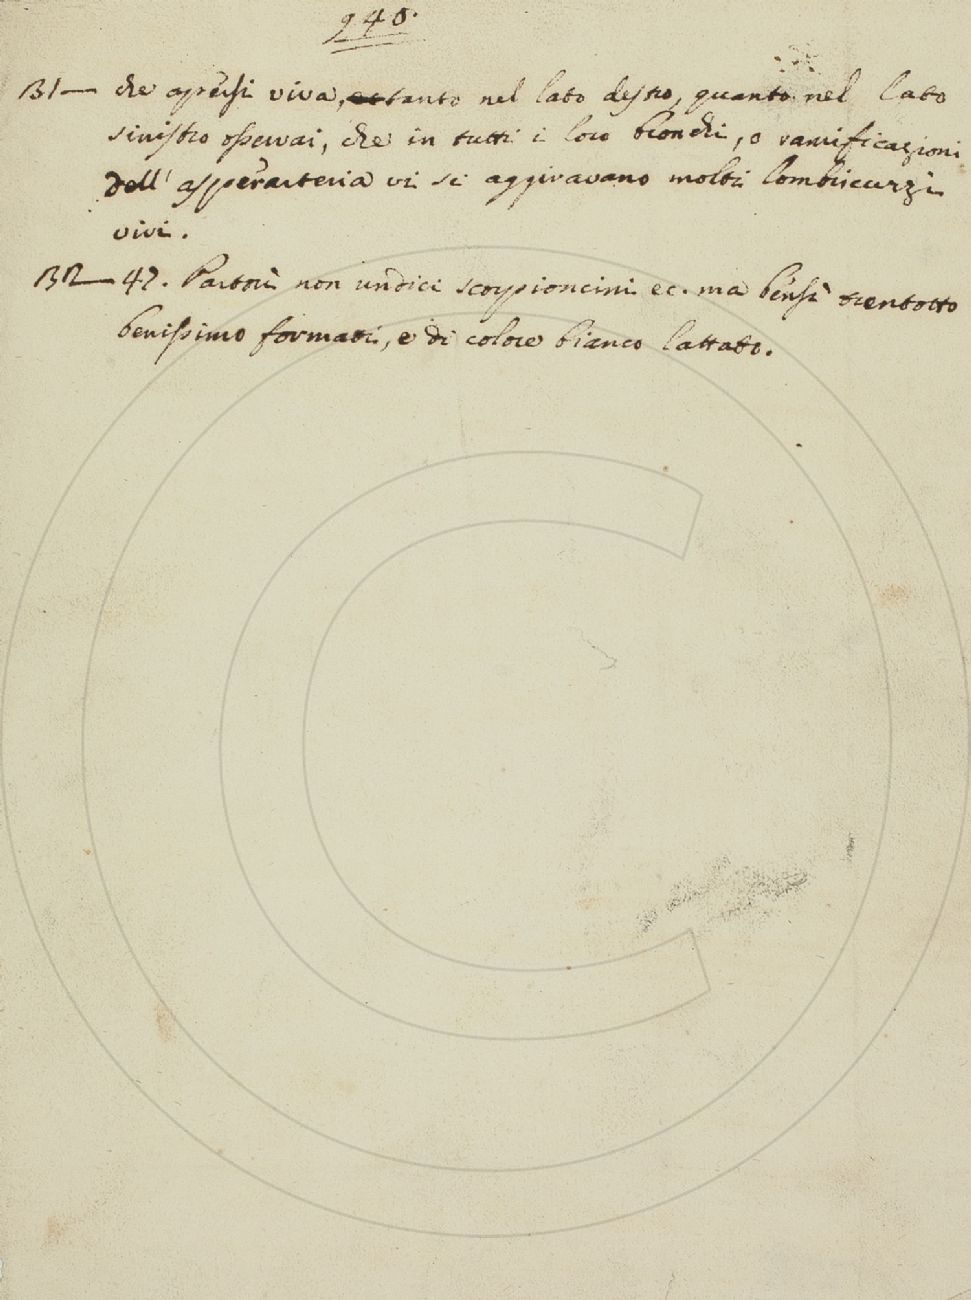 240.
131— che apersi viva, et tanto nel lato destro, quanto nel lato
sinistro osservai, che in tutti i loro bronchi, o ramificazioni
dell' asperarteria vi si aggiravano molti lombricuzzi
vivi.
132—47. Partorì non undici scorpioncini ec. ma bensì trentotto
benissimo formati, e di colore bianco lattato.